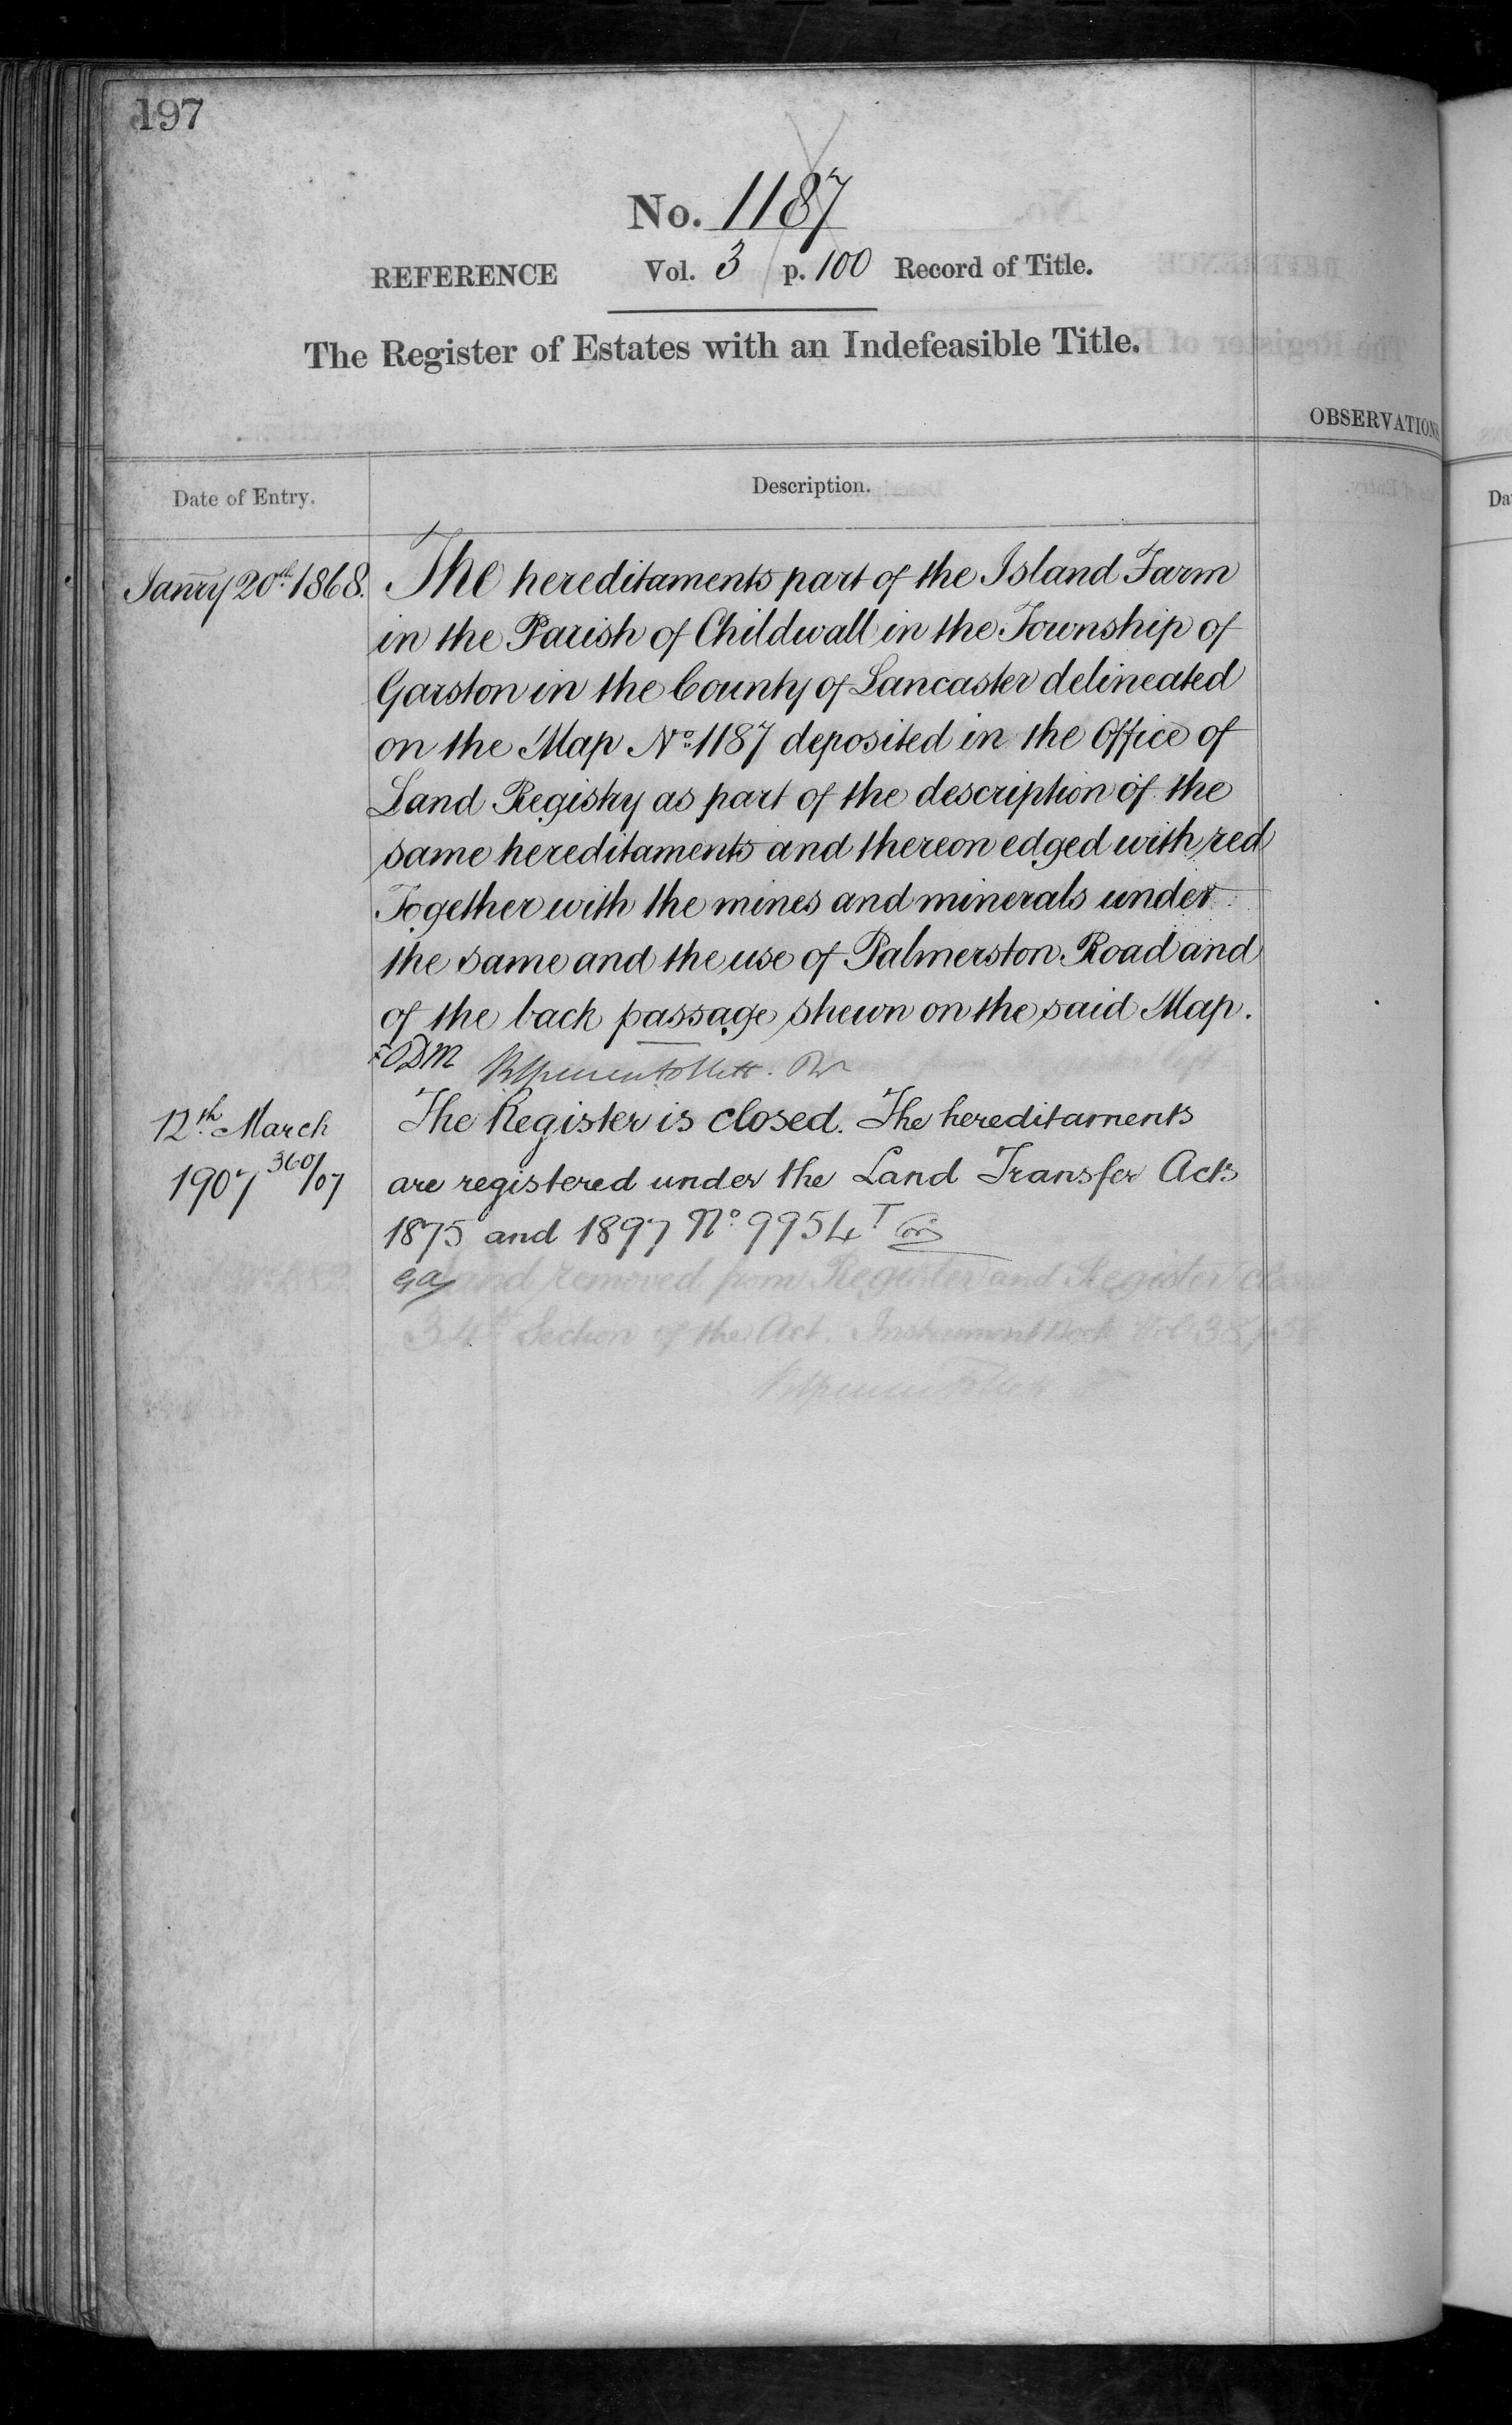 197
No. 1187
REFERENCE Vol. 3 p. 100 Record of Title.
The Register of Estates with an Indefeasible Title.
OBSERVATIONS
Date of Entry.
Description.
Janry 20th 1868.
The hereditaments part of the Island Farm
in the Parish of Childwall in the Township of
Garston in the County of Lancaster delineated
on the Map No. 1187 deposited in the Office of
Land Registry as part of the description of the
same hereditaments and thereon edged with red
Together with the mines and minerals under
the same and the use of Palmerston Road and
of the back passage shewn on the said Map.
12th March
1907 360/07
The Register is closed. The hereditaments
are registered under the Land Transfer Acts
1875 and 1897 No. 9954 T
Land removed from Register and Register
34th Section of the Act. Instrument Book Vol 38